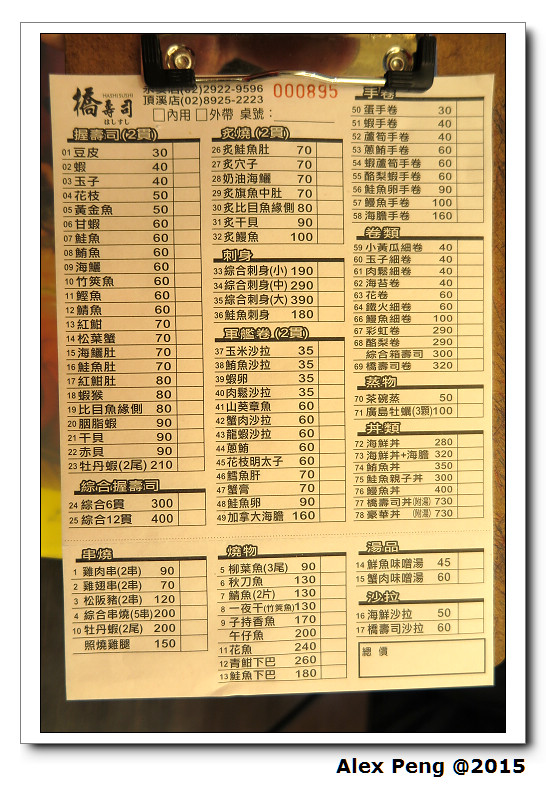 橋壽司
HASHI SUSHI
はしすし
永安店(02)2922-9596
頂溪店(02)8925-2223
000895
□內用 □外帶 桌號:
握壽司(2貫)
01 豆皮 30
02 蝦 40
03 玉子 40
04 花枝 50
05 黃金魚 50
06 甘蝦 60
07 鮭魚 60
08 鮪魚 60
09 海鱺 60
10 竹筴魚 60
11 鰹魚 60
12 鯖魚 60
13 紅魽 70
14 松葉蟹 70
15 海鱺肚 70
16 鮭魚肚 70
17 紅魽肚 80
18 蝦猴 80
19 比目魚緣側 80
20 胭脂蝦 90
21 干貝 90
22 赤貝 90
23 牡丹蝦(2尾) 210
綜合握壽司
24 綜合6貫 300
25 綜合12貫 400
炙燒(2貫)
26 炙鮭魚肚 70
27 炙穴子 70
28 奶油海鱺 70
29 炙旗魚中肚 70
30 炙比目魚緣側 80
31 炙干貝 90
32 炙鰻魚 100
刺身
33 綜合刺身(小) 190
34 綜合刺身(中) 290
35 綜合刺身(大) 390
36 鮭魚刺身 180
軍艦卷(2貫)
37 玉米沙拉 35
38 鮪魚沙拉 35
39 蝦卵 35
40 肉鬆沙拉 35
41 山葵章魚 60
42 蟹肉沙拉 60
43 龍蝦沙拉 60
44 蔥鮪 60
45 花枝明太子 60
46 鱈魚肝 70
47 蟹膏 70
48 鮭魚卵 90
49 加拿大海膽 160
手卷
50 蛋手卷 30
51 蝦手卷 40
52 蘆筍手卷 40
53 蔥鮪手卷 60
54 蝦蘆筍手卷 60
55 酪梨蝦手卷 60
56 鮭魚卵手卷 90
57 鰻魚手卷 100
58 海膽手卷 160
卷類
59 小黃瓜細卷 40
60 玉子細卷 40
61 肉鬆細卷 40
62 海苔卷 40
63 花卷 60
64 鐵火細卷 60
66 鰻魚細卷 100
67 彩虹卷 290
68 酪梨卷 290
綜合箱壽司 300
69 橋壽司卷 320
蒸物
70 茶碗蒸 50
71 廣島牡蠣(3顆) 100
丼類
72 海鮮丼 280
73 海鮮丼+海膽 320
74 鮪魚丼 350
75 鮭魚親子丼 300
76 鰻魚丼 400
77 橋壽司丼(附湯) 730
78 豪華丼(附湯) 730
串燒
1 雞肉串(2串) 90
2 雞翅串(2串) 70
3 松阪豬(2串) 120
4 綜合串燒(5串) 200
10 牡丹蝦(2尾) 200
照燒雞腿 150
燒物
5 柳葉魚(3尾) 90
6 秋刀魚 130
7 鯖魚(2片) 130
8 一夜干(竹筴魚) 130
9 子持香魚 170
午仔魚 200
11 花魚 240
12 青魽下巴 260
13 鮭魚下巴 180
湯品
14 鮮魚味噌湯 45
15 蟹肉味噌湯 60
沙拉
16 海鮮沙拉 50
17 橋壽司沙拉 60
總價
Alex Peng @2015